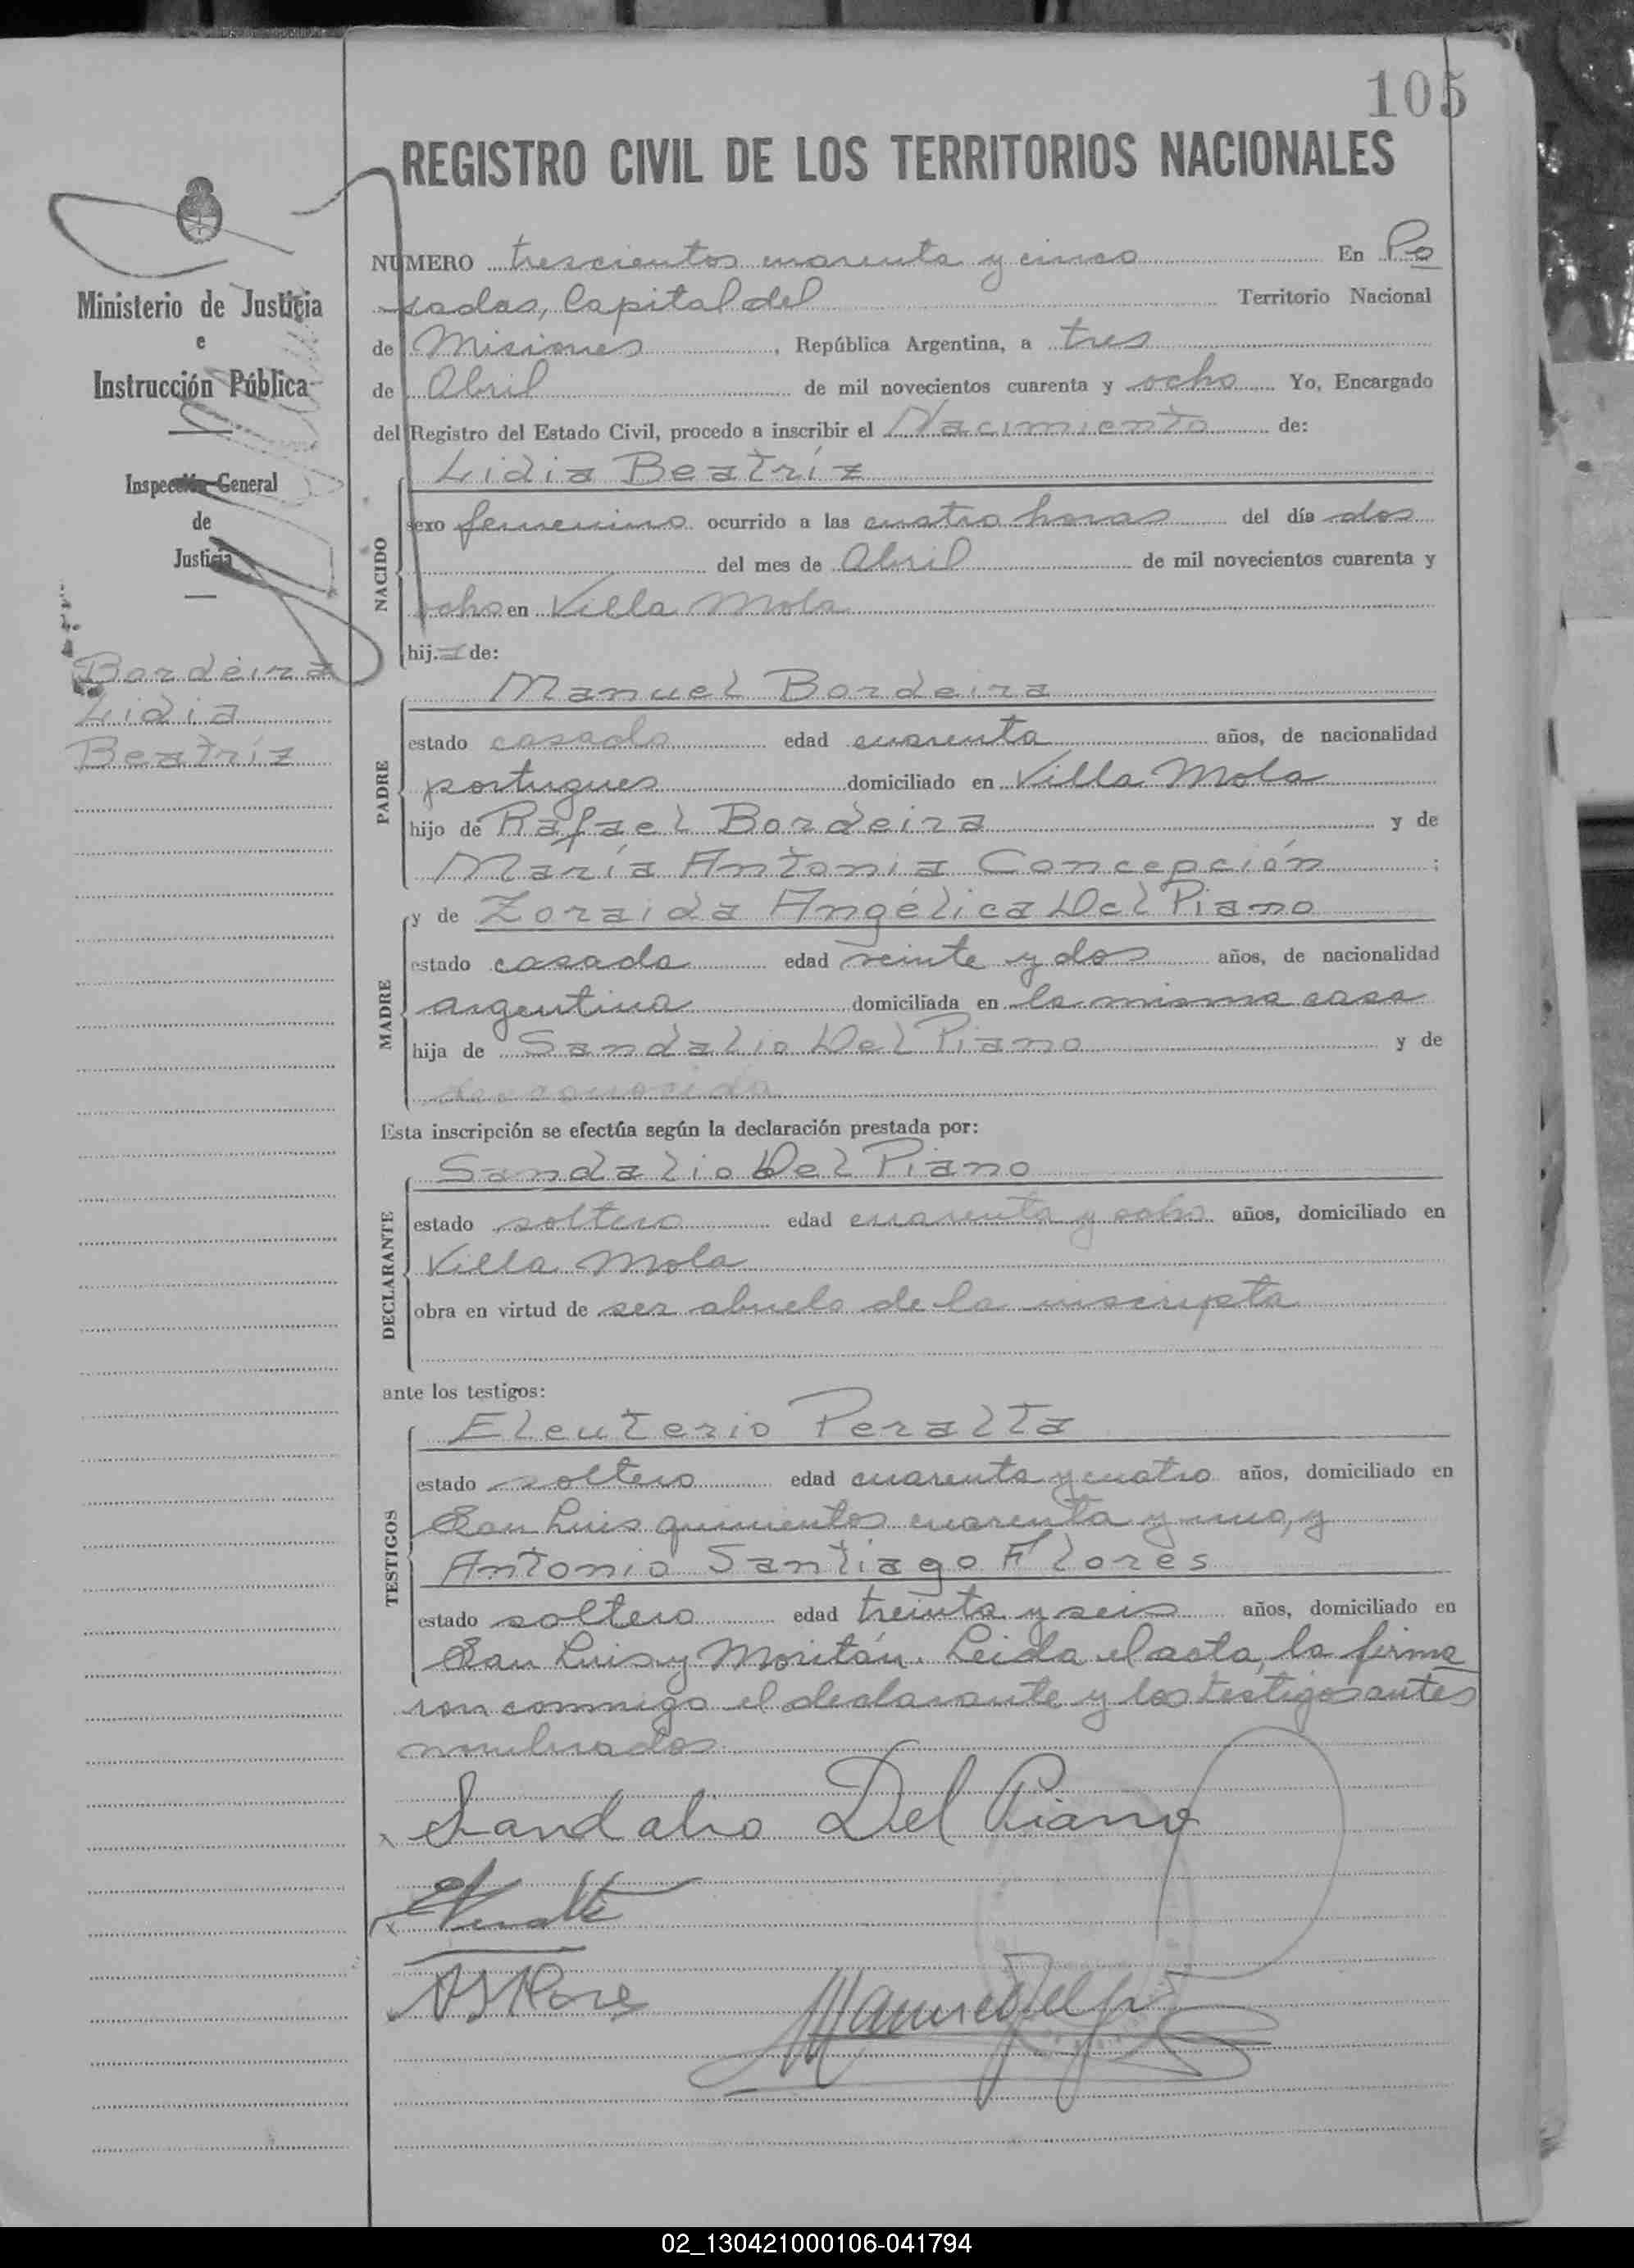 105
REGISTRO CIVIL DE LOS TERRITORIOS NACIONALES
Ministerio de Justicia
e
Instrucción Pública
Inspección General
de
Justicia
Bordeira
Lidia
Beatríz
NUMERO trescientos cuarenta y cinco En Po
sadas, Capital del Territorio Nacional
de Misiones, República Argentina, a tres
de Abril de mil novecientos cuarenta y ocho Yo, Encargado
del Registro del Estado Civil, procedo a inscribir el Nacimiento de:
Lidia Beatríz
NACIDO
sexo femenino ocurrido a las cuatro horas del día dos
del mes de Abril de mil novecientos cuarenta y
ocho en Villa Mola
hija de:
Manuel Bordeira
PADRE
estado casado edad cuarenta años, de nacionalidad
portugues domiciliado en Villa Mola
hijo de Rafael Bordeira y de
María Antonia Concepción ;
y de Zoraida Angélica Del Piano
MADRE
estado casada edad veinte y dos años, de nacionalidad
argentina domiciliada en la misma casa
hija de Sandalio Del Piano y de
desconocida
Esta inscripción se efectúa según la declaración prestada por:
Sandalio Del Piano
DECLARANTE
estado soltero edad cuarenta y ocho años, domiciliado en
Villa Mola
obra en virtud de ser abuelo de la inscripta
ante los testigos:
Eleuterio Peralta
TESTIGOS
estado soltero edad cuarenta y cuatro años, domiciliado en
San Luis quinientos cuarenta y uno, y
Antonio Santiago Flores
estado soltero edad treinta y seis años, domiciliado en
San Luis y Moritán. Leida el acta, la firma
ron conmigo el declarante y los testigos antes
nombrados
Sandalio Del Piano
02_130421000106-041794